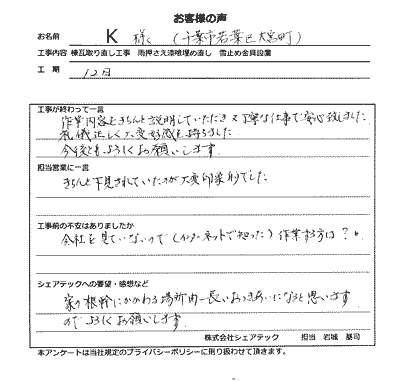 お客様の声
お名前 K 様 (千葉市若葉区大宮町)
工事内容 棟瓦取り直し工事 雨押さえ漆喰埋め直し 雪止め金具設置
工期 12日
工事が終わって一言
作業内容をきちんと説明していただき 丁寧な仕事で安心致しました
礼儀正しく大変好感を持ちました
今後ともよろしくお願いします
担当営業に一言
きちんと下見されていたのが大変印象的でした
工事前の不安はありましたか
会社を見ていないので(インターネットで知った)作業する方は?
シェアテックへの要望・感想など
家の根幹にかかわる場所 長いおつきあいになると思います
のでよろしくお願いします
株式会社シェアテック 担当 岩城 基司
本アンケートは当社規定のプライバシーポリシーに則り扱わせて頂きます。